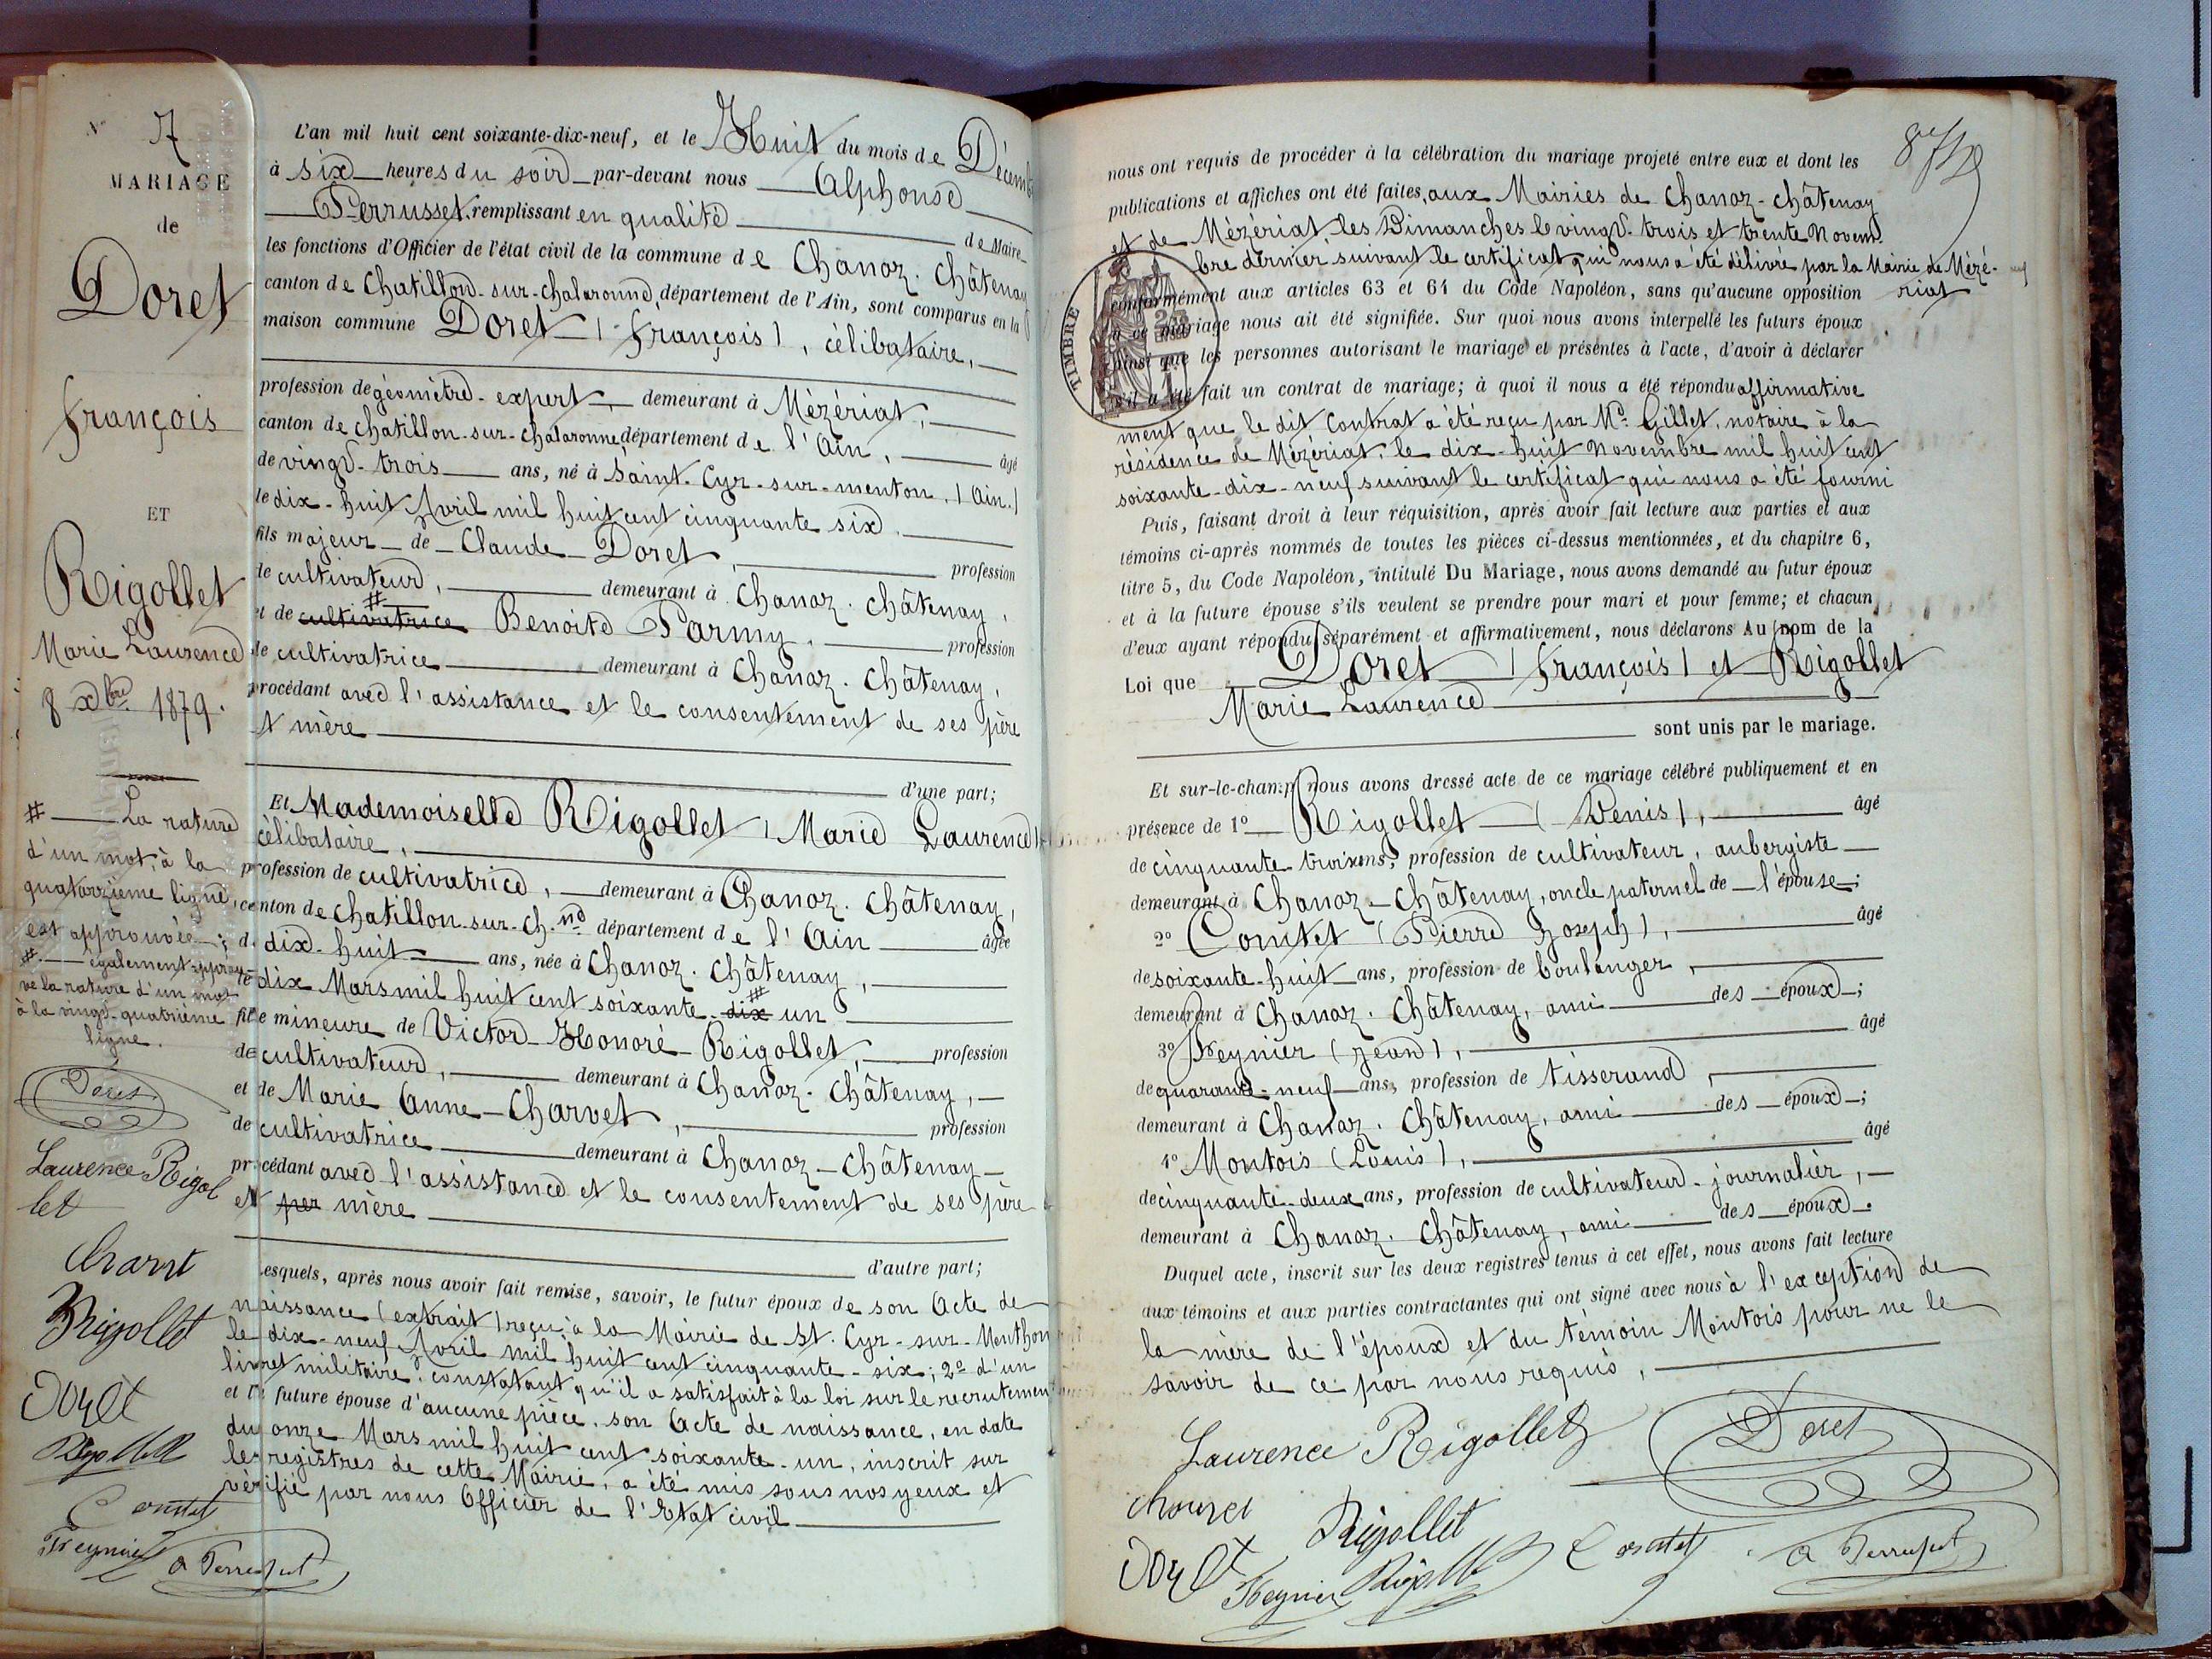 N° 7
MARIAGE
de
Doret
François
ET
Rigollet
Marie Laurence
8 xbre 1879.
# La rature
d'un mot, à la
quatorzième ligne,
est approuvée ;
# également approu-
vé la rature d'un mot
à la vingt-quatrième
ligne.
Doret
Laurence Rigol
let
Rigollet
Doret
Comtet
A Perrusset
L'an mil huit cent soixante-dix-neuf, et le Huit du mois de Décemb
à six heures du soir par-devant nous Alphonse
Perrusset, remplissant en qualité de Maire
les fonctions d'Officier de l'état civil de la commune de Chanoz-Châtenay
canton de Chatillon-sur-chalaronne, département de l'Ain, sont comparus en la
maison commune Doret (François), célibataire,
profession de géomètre-expert, demeurant à Mézériat,
canton de chatillon-sur-chalaronne département de l'Ain, âgé
de vingt-trois ans, né à Saint-Cyr-sur-menton, (Ain.)
le dix-huit Avril mil huit cent cinquante six,
fils majeur de Claude Doret, profession
de cultivateur, demeurant à Chanoz-Châtenay,
#
et de cultivatrice Benoite Parmy, profession
de cultivatrice demeurant à Chanoz-Châtenay,
procédant avec l'assistance et le consentement de ses père
et mère
d'une part;
Et Mademoiselle Rigollet (Marie Laurence)
célibataire,
profession de cultivatrice, demeurant à Chanoz-Châtenay,
canton de chatillon-sur-Ch.ne département de l'Ain âgée
de dix-huit ans, née à Chanoz-Châtenay,
le dix Mars mil huit cent soixante-dix # un
fille mineure de Victor-Honoré-Rigollet, profession
de cultivateur, demeurant à Chanoz-Châtenay,
et de Marie Anne-Charvet, profession
de cultivatrice demeurant à Chanoz-Châtenay
procédant avec l'assistance et le consentement de ses père
et per mère
d'autre part;
Lesquels, après nous avoir fait remise, savoir, le futur époux de son Acte de
naissance (extrait) reçu à la Mairie de St. Cyr-sur-Menthon
le dix-neuf Avril mil huit cent cinquante-six; 2° d'un
livret militaire, constatant qu'il a satisfait à la loi sur le recrutement
et la future épouse d'aucune pièce, son Acte de naissance, en date
du onze Mars mil huit cent soixante-un, inscrit sur
les registres de cette Mairie, a été mis sous nos yeux et
vérifié par nous Officier de l'Etat civil
nous ont requis de procéder à la célébration du mariage projeté entre eux et dont les
publications et affiches ont été faites, aux Mairies de Chanoz-châtenay
et de Mézériat, les Dimanches le vingt-trois et trente Novem
bre dernier suivant le certificat qui nous a été délivré par la Mairie de Mézé-
riat
conformément aux articles 63 et 64 du Code Napoléon, sans qu'aucune opposition
à ce mariage nous ait été signifiée. Sur quoi nous avons interpellé les futurs époux
ainsi que les personnes autorisant le mariage et présentes à l'acte, d'avoir à déclarer
s'il a été fait un contrat de mariage; à quoi il nous a été répondu affirmative
ment que le dit Contrat a été reçu par Me. Gillet, notaire à la
résidence de Mézériat, le dix-huit Novembre mil huit cent
soixante-dix-neuf suivant le certificat qui nous a été fourni
TIMBRE
Puis, faisant droit à leur réquisition, après avoir fait lecture aux parties et aux
témoins ci-après nommés de toutes les pièces ci-dessus mentionnées, et du chapitre 6,
titre 5, du Code Napoléon, intitulé Du Mariage, nous avons demandé au futur époux
et à la future épouse s'ils veulent se prendre pour mari et pour femme; et chacun
d'eux ayant répondu séparément et affirmativement, nous déclarons Au nom de la
Loi que Doret (François) et Rigollet
Marie Laurence
sont unis par le mariage.
Et sur-le-champ nous avons dressé acte de ce mariage célébré publiquement et en
présence de 1° Rigollet (Denis), âgé
de cinquante trois ans, profession de cultivateur, aubergiste
demeurant à Chanoz-Châtenay, oncle paternel de l'épouse;
2° Comtet (Pierre Joseph), âgé
de soixante-huit ans, profession de boulanger,
demeurant à Chanoz-Châtenay, ami des époux;
3° Freynier (Jean), âgé
de quarante-neuf ans, profession de tisserand,
demeurant à Chanoz-Châtenay, ami des époux;
4° Montois (Louis), âgé
de cinquante-deux ans, profession de cultivateur-journalier,
demeurant à Chanoz-Châtenay, ami des époux.
Duquel acte, inscrit sur les deux registres tenus à cet effet, nous avons fait lecture
aux témoins et aux parties contractantes qui ont signé avec nous à l'exception de
la mère de l'époux et du témoin Montois pour ne le
savoir de ce par nous requis,
Laurence Rigollet Doret
Rigollet
Doret Freynier Rigollet Comtet A Perrusset